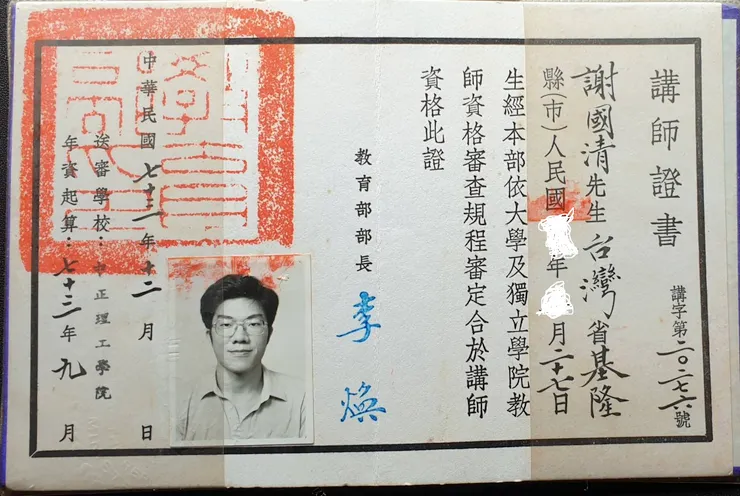 講師證書
講字第二〇二七六號
謝國清先生台灣省基隆
縣(市)人民國 年 月二十七日
生經本部依大學及獨立學院教
師資格審查規程審定合於講師
資格此證
教育部部長 李煥
中華民國七十三年十二月 日
送審學校:中正理工學院
年資起算:七十三年九月